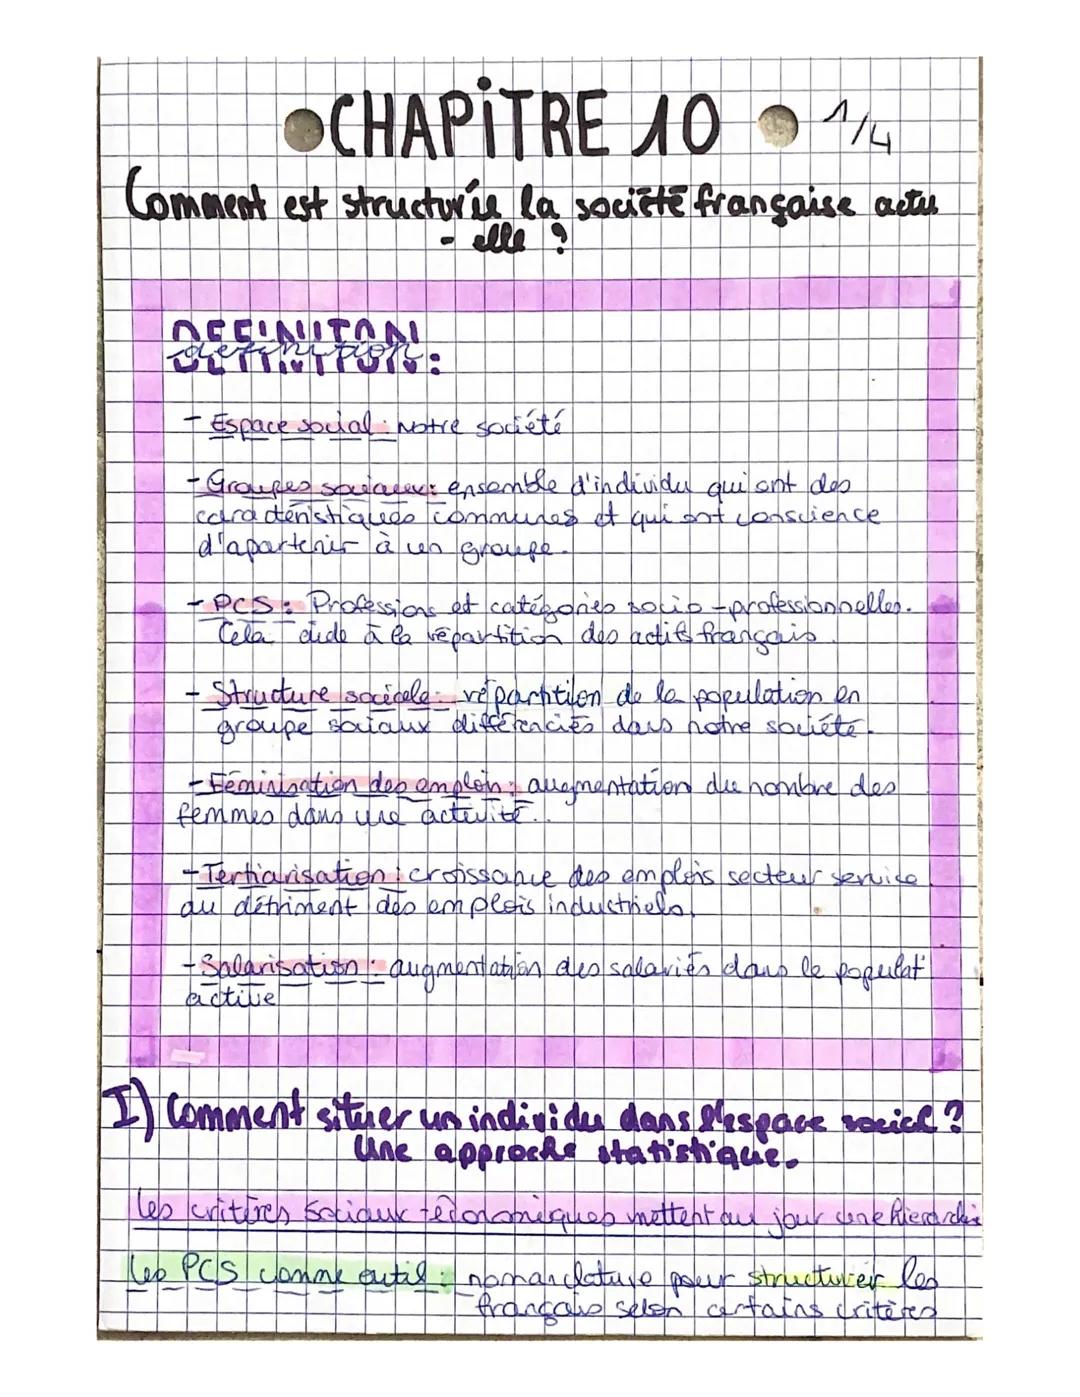 CHAPITRE 10 1/4
Comment est structurée la société française actu
- elle ?
définition :
- Espace social : Notre société
- Groupes sociaux : ensemble d'individu qui ont des
caractéristiques communes et qui ont conscience
d'apartenir à un groupe.
- PCS : Professions et catégories socio-professionnelles.
Cela aide à la répartition des actifs français.
- Structure sociale : répartition de la population en
groupe sociaux différenciés dans notre société.
- Féminisation des emplois : augmentation du nombre des
femmes dans une activité..
- Tertiarisation : croissance des emplois secteur service
au détriment des emplois industriels.
- Salarisation : augmentation des salariés dans le populat°
active
I) Comment situer un individu dans l'espace social ?
Une approche statistique.
Les critères sociaux-économiques mettent au jour une hierarchie
Les PCS comme outil : nomanclature pour structurer les
français selon certains critères